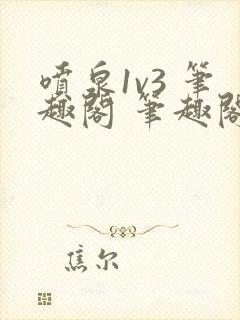 喷泉1v3 筆
趣閣 筆趣閣
焦尔